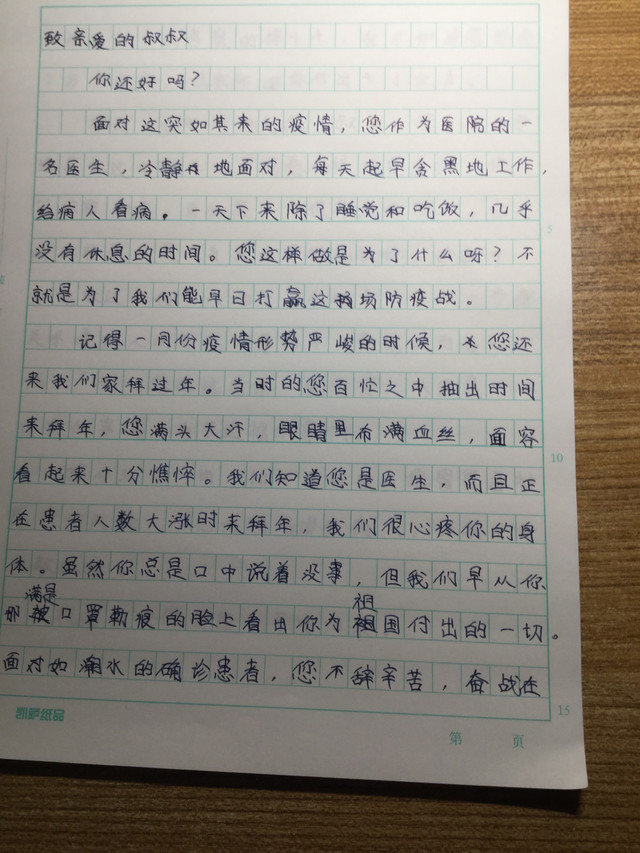 致亲爱的叔叔
你还好吗？
面对这突如其来的疫情，您作为医院的一
名医生，冷静地面对，每天起早贪黑地工作，
给病人看病。一天下来除了睡觉和吃饭，几乎
没有休息的时间。您这样做是为了什么呀？不
就是为了我们能早日打赢这场防疫战。
记得一月份疫情形势严峻的时候，您还
来我们家拜过年。当时的您百忙之中抽出时间
来拜年，您满头大汗，眼睛里布满血丝，面容
看起来十分憔悴。我们知道您是医生，而且正
在患者人数大涨时来拜年，我们很心疼你的身
体。虽然你总是口中说着没事，但我们早从你
那满是口罩勒痕的脸上看出你为祖国付出的一切。
面对如潮水的确诊患者，您不辞辛苦，奋战在
凯萨纸品
第 页
5
10
15